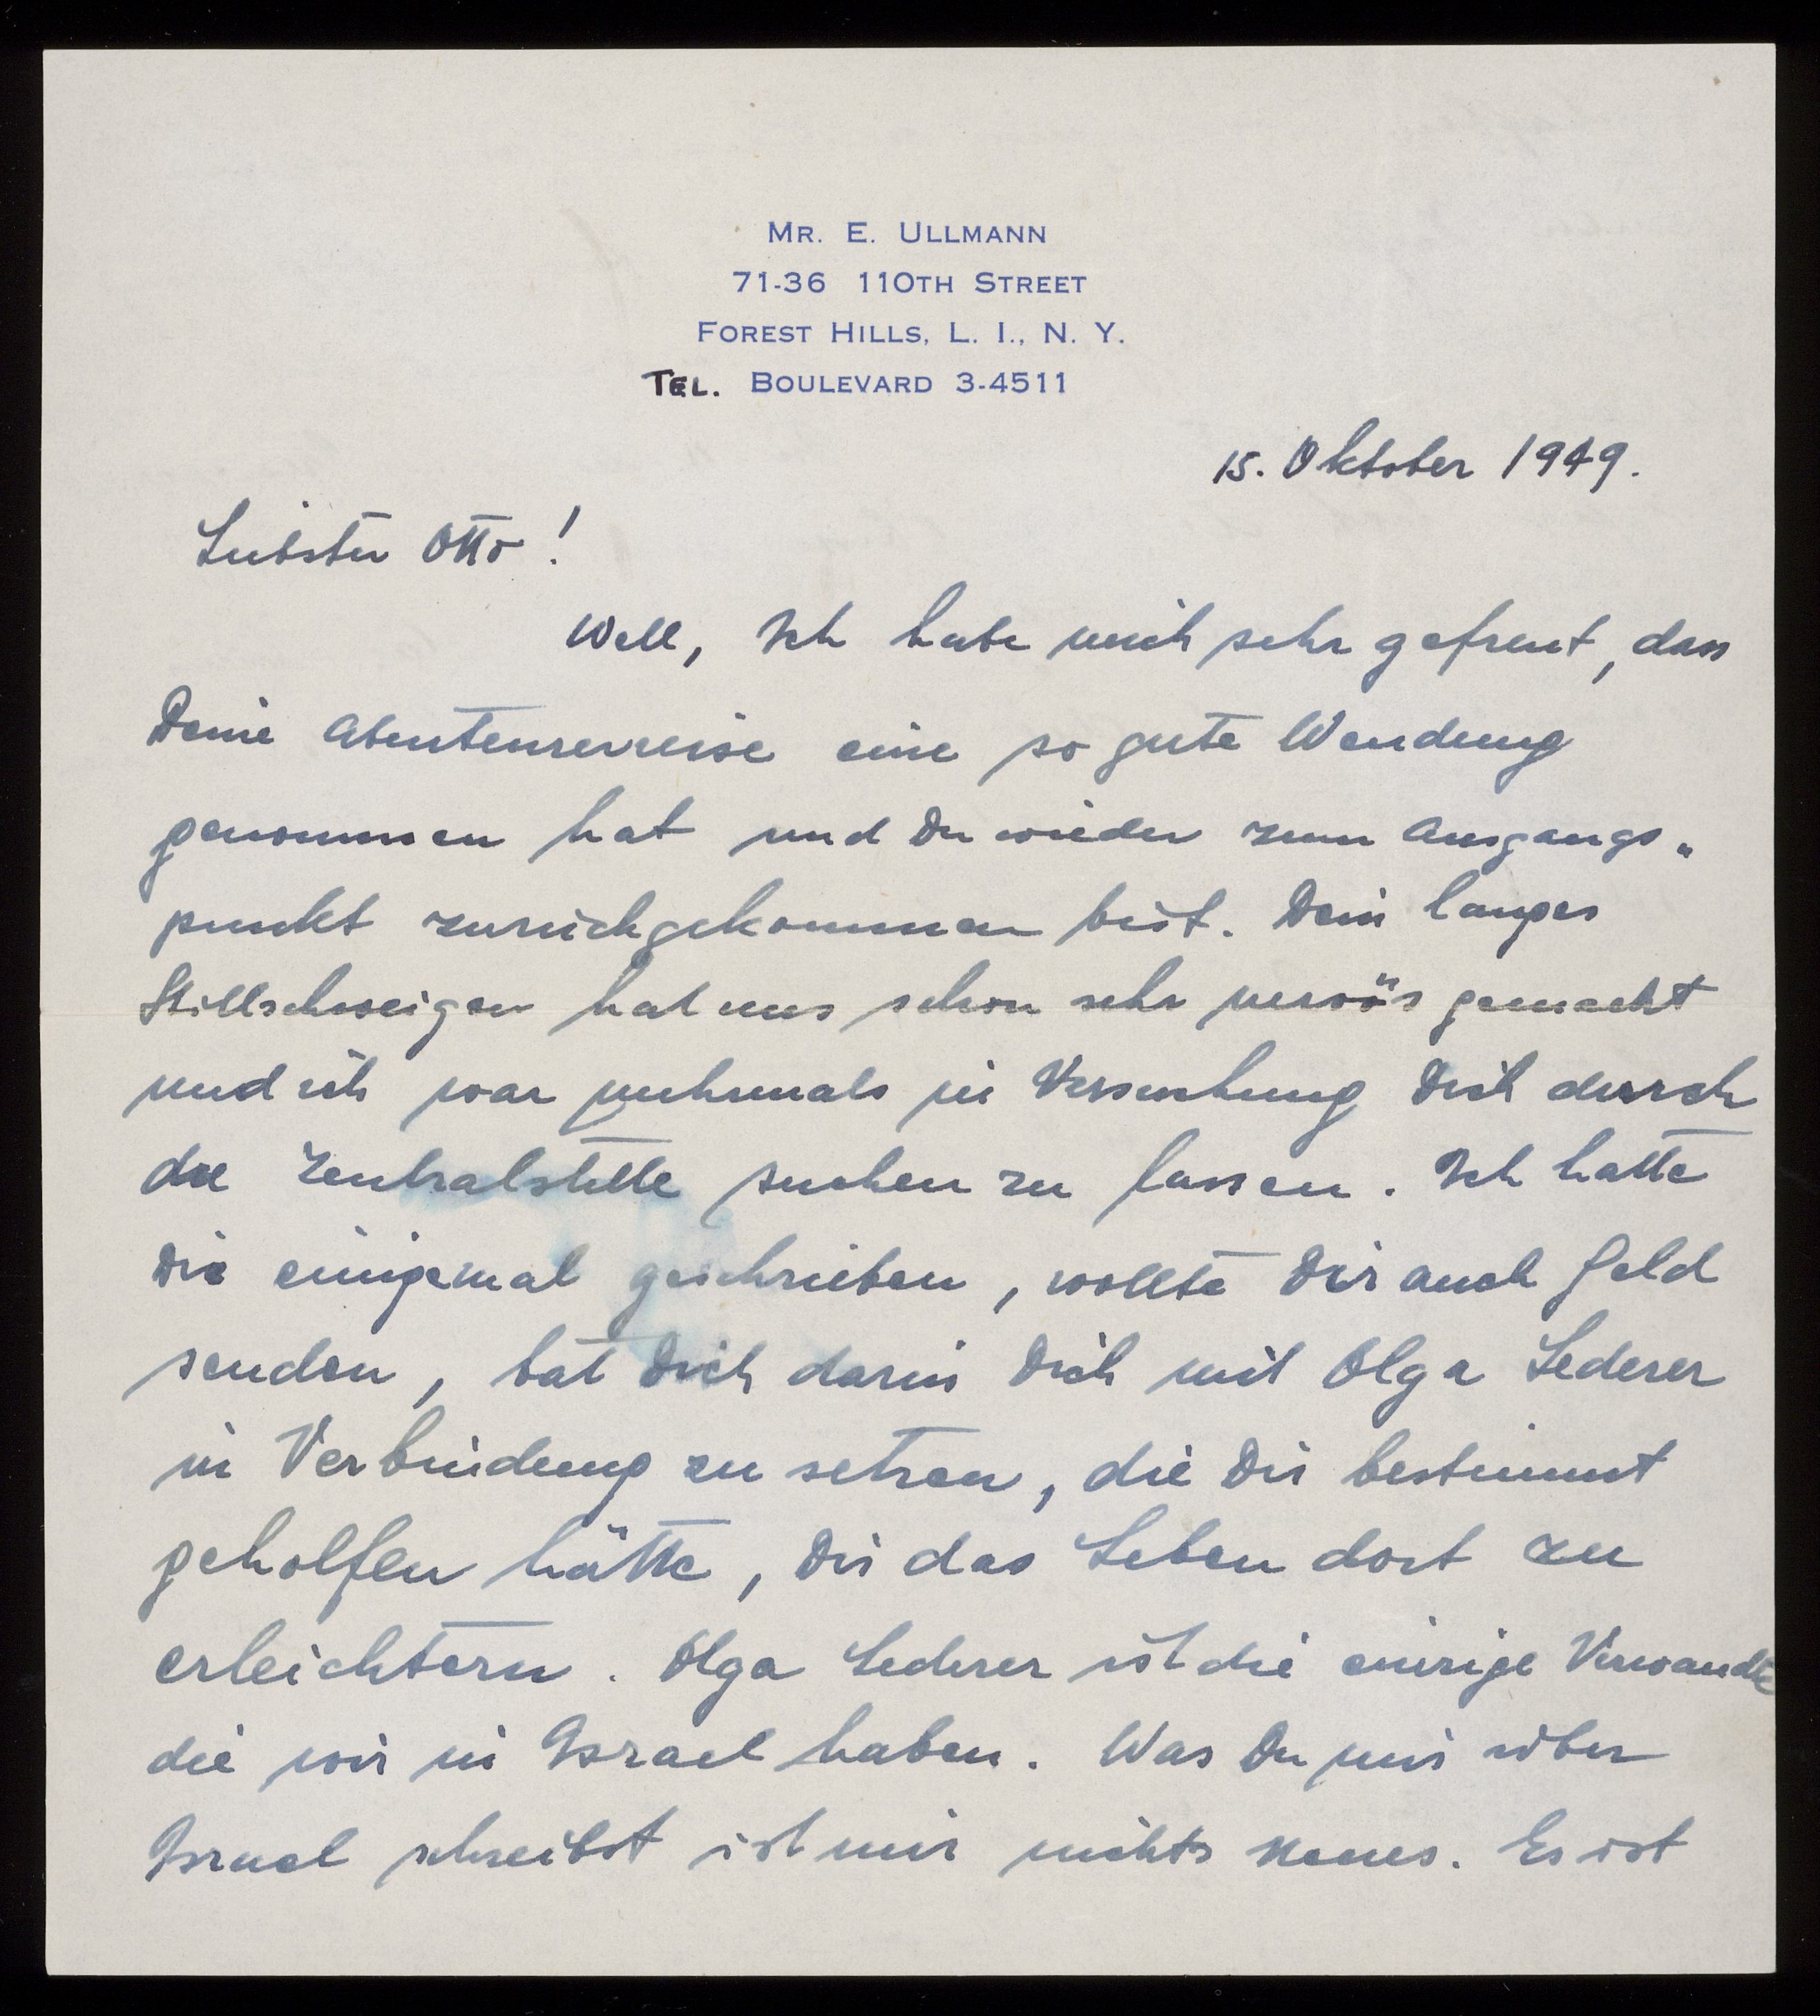 MR. E. ULLMANN
71-36 110TH STREET
FOREST HILLS, L. I., N. Y.
TEL. BOULEVARD 3-4511
15. Oktober 1949.
Liebster Otto!
Well, Ich habe mich sehr gefreut, dass
Deine Abenteurerreise eine so gute Wendung
genommen hat und Du wieder zum Ausgangs„
punkt zurückgekommen bist. Dein langes
Stillschweigen hat uns schon sehr nervös gemacht
und ich war mehrmals in Versuchung Dich durch
die Zentralstelle suchen zu lassen. Ich hatte
Dir einigemal geschrieben, wollte Dir auch Geld
senden, bat Dich darin Dich mit Olga Lederer
in Verbindung zu setzen, die Dir bestimmt
geholfen hätte, Dir das Leben dort zu
erleichtern. Olga Lederer ist die einzige Verwandte
die wir in Israel haben. Was Du mir über
Israel schreibst ist mir nichts Neues. Es ist